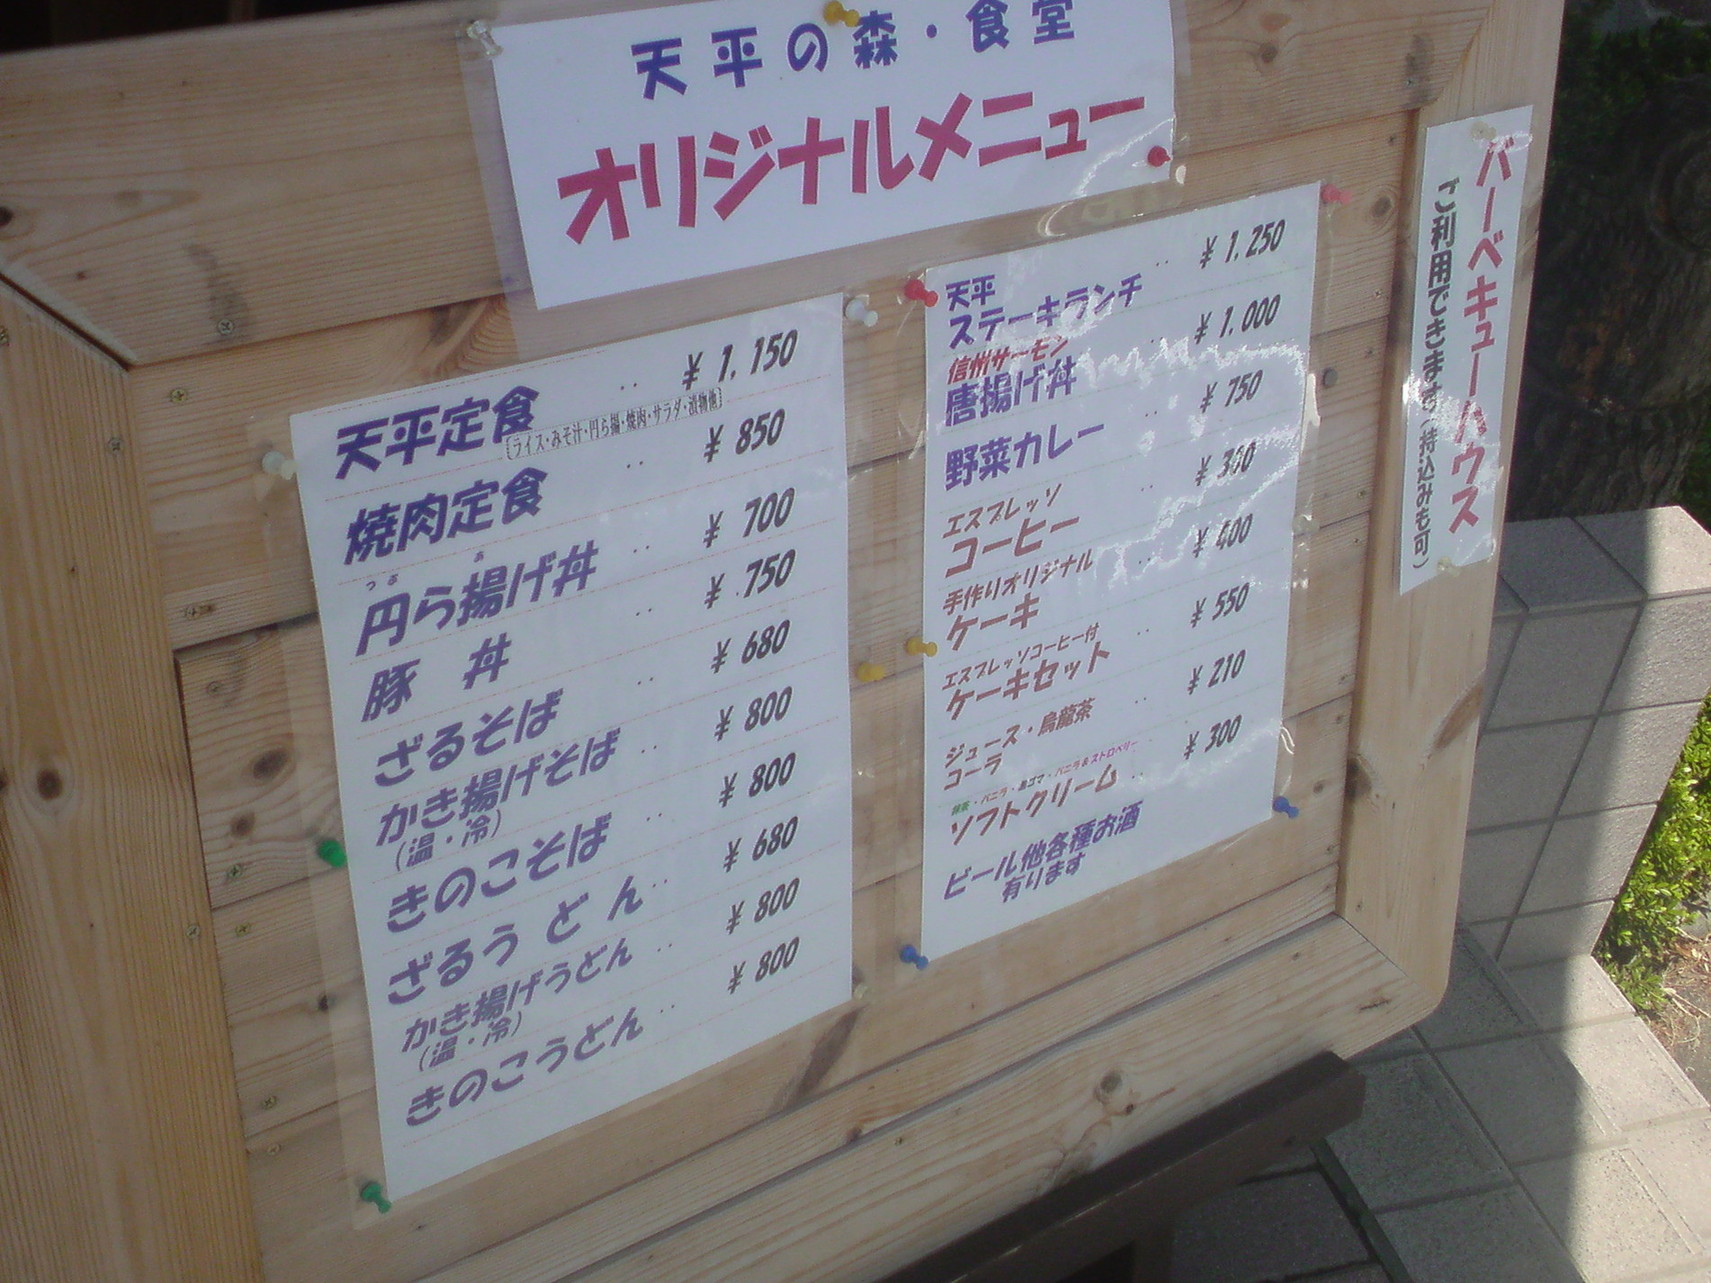 天平の森・食堂
オリジナルメニュー
天平定食 ‥ ¥1,150
〔ライス・みそ汁・円ら揚・焼肉・サラダ・漬物他〕
焼肉定食 ‥ ¥850
つぶ あ
円ら揚げ丼 ‥ ¥700
豚 丼 ‥ ¥750
ざるそば ‥ ¥680
かき揚げそば ‥ ¥800
(温・冷)
きのこそば ‥ ¥800
ざるうどん ‥ ¥680
かき揚げうどん ‥ ¥800
(温・冷)
きのこうどん ‥ ¥800
天平
ステーキランチ ‥ ¥1,250
信州サーモン
唐揚げ丼 ‥ ¥1,000
野菜カレー ‥ ¥750
エスプレッソ
コーヒー ‥ ¥300
手作りオリジナル
ケーキ ‥ ¥400
エスプレッソコーヒー付
ケーキセット ‥ ¥550
ジュース・烏龍茶
コーラ ‥ ¥210
・バニラ・黒ゴマ・バニラ&ストロベリー
ソフトクリーム ‥ ¥300
ビール他各種お酒
有ります
バーベキューハウス
ご利用できます(持込みも可)